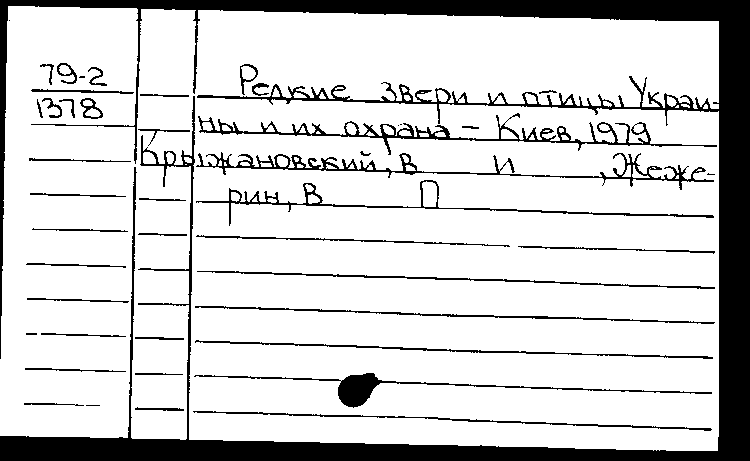 79-2
1378
Редкие звери и птицы Украи-
ны и их охрана - Киев, 1979
Крыжановский, В И , Жеже-
рин, В П